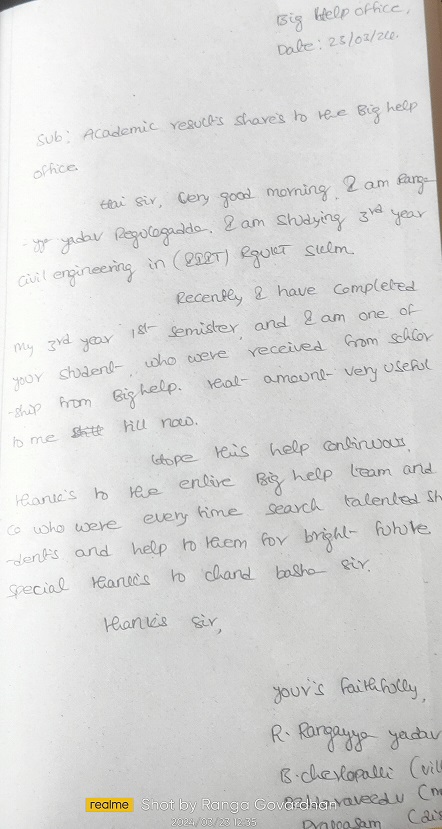 Big Help office,
Date: 23/03/24.
Sub: Academic results share's to the Big help
office.
Hai Sir, Very good morning, I am Rang-
yadav Regulagadda. I am studying 3rd year
Civil engineering in (IIIT) RGUKT Sklm.
Recently I have completed
my 3rd year 1st semister, and I am one of
your student, who were received from schlor
-ship from Big help. real amount very useful
to me till now.
Hope this help continuous,
thank's to the entire Big help team and
who were every time search talented st
-dent's and help to them for bright future
special thank's to chand basha sir.
thank's sir,
your's faithfully,
R. Rangayya yadav
B. cherlopalli (vill
(m
Prakasam (dis
realme Shot by Ranga Govardhan
2024/03/23 12:35